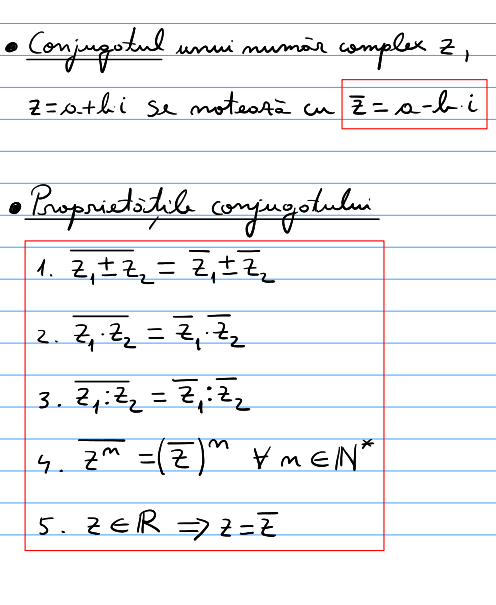 • Conjugatul unui număr complex z,
z = a + b·i se notează cu z̅ = a - b·i
• Proprietățile conjugatului
1. \overline{z₁ ± z₂} = z̅₁ ± z̅₂
2. \overline{z₁ · z₂} = z̅₁ · z̅₂
3. \overline{z₁ : z₂} = z̅₁ : z̅₂
4. \overline{zⁿ} = (z̅)ⁿ ∀ n ∈ ℕ*
5. z ∈ ℝ ⇒ z = z̅